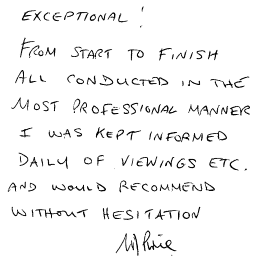 EXCEPTIONAL!
FROM START TO FINISH
ALL CONDUCTED IN THE
MOST PROFESSIONAL MANNER
I WAS KEPT INFORMED
DAILY OF VIEWINGS ETC.
AND WOULD RECOMMEND
WITHOUT HESITATION